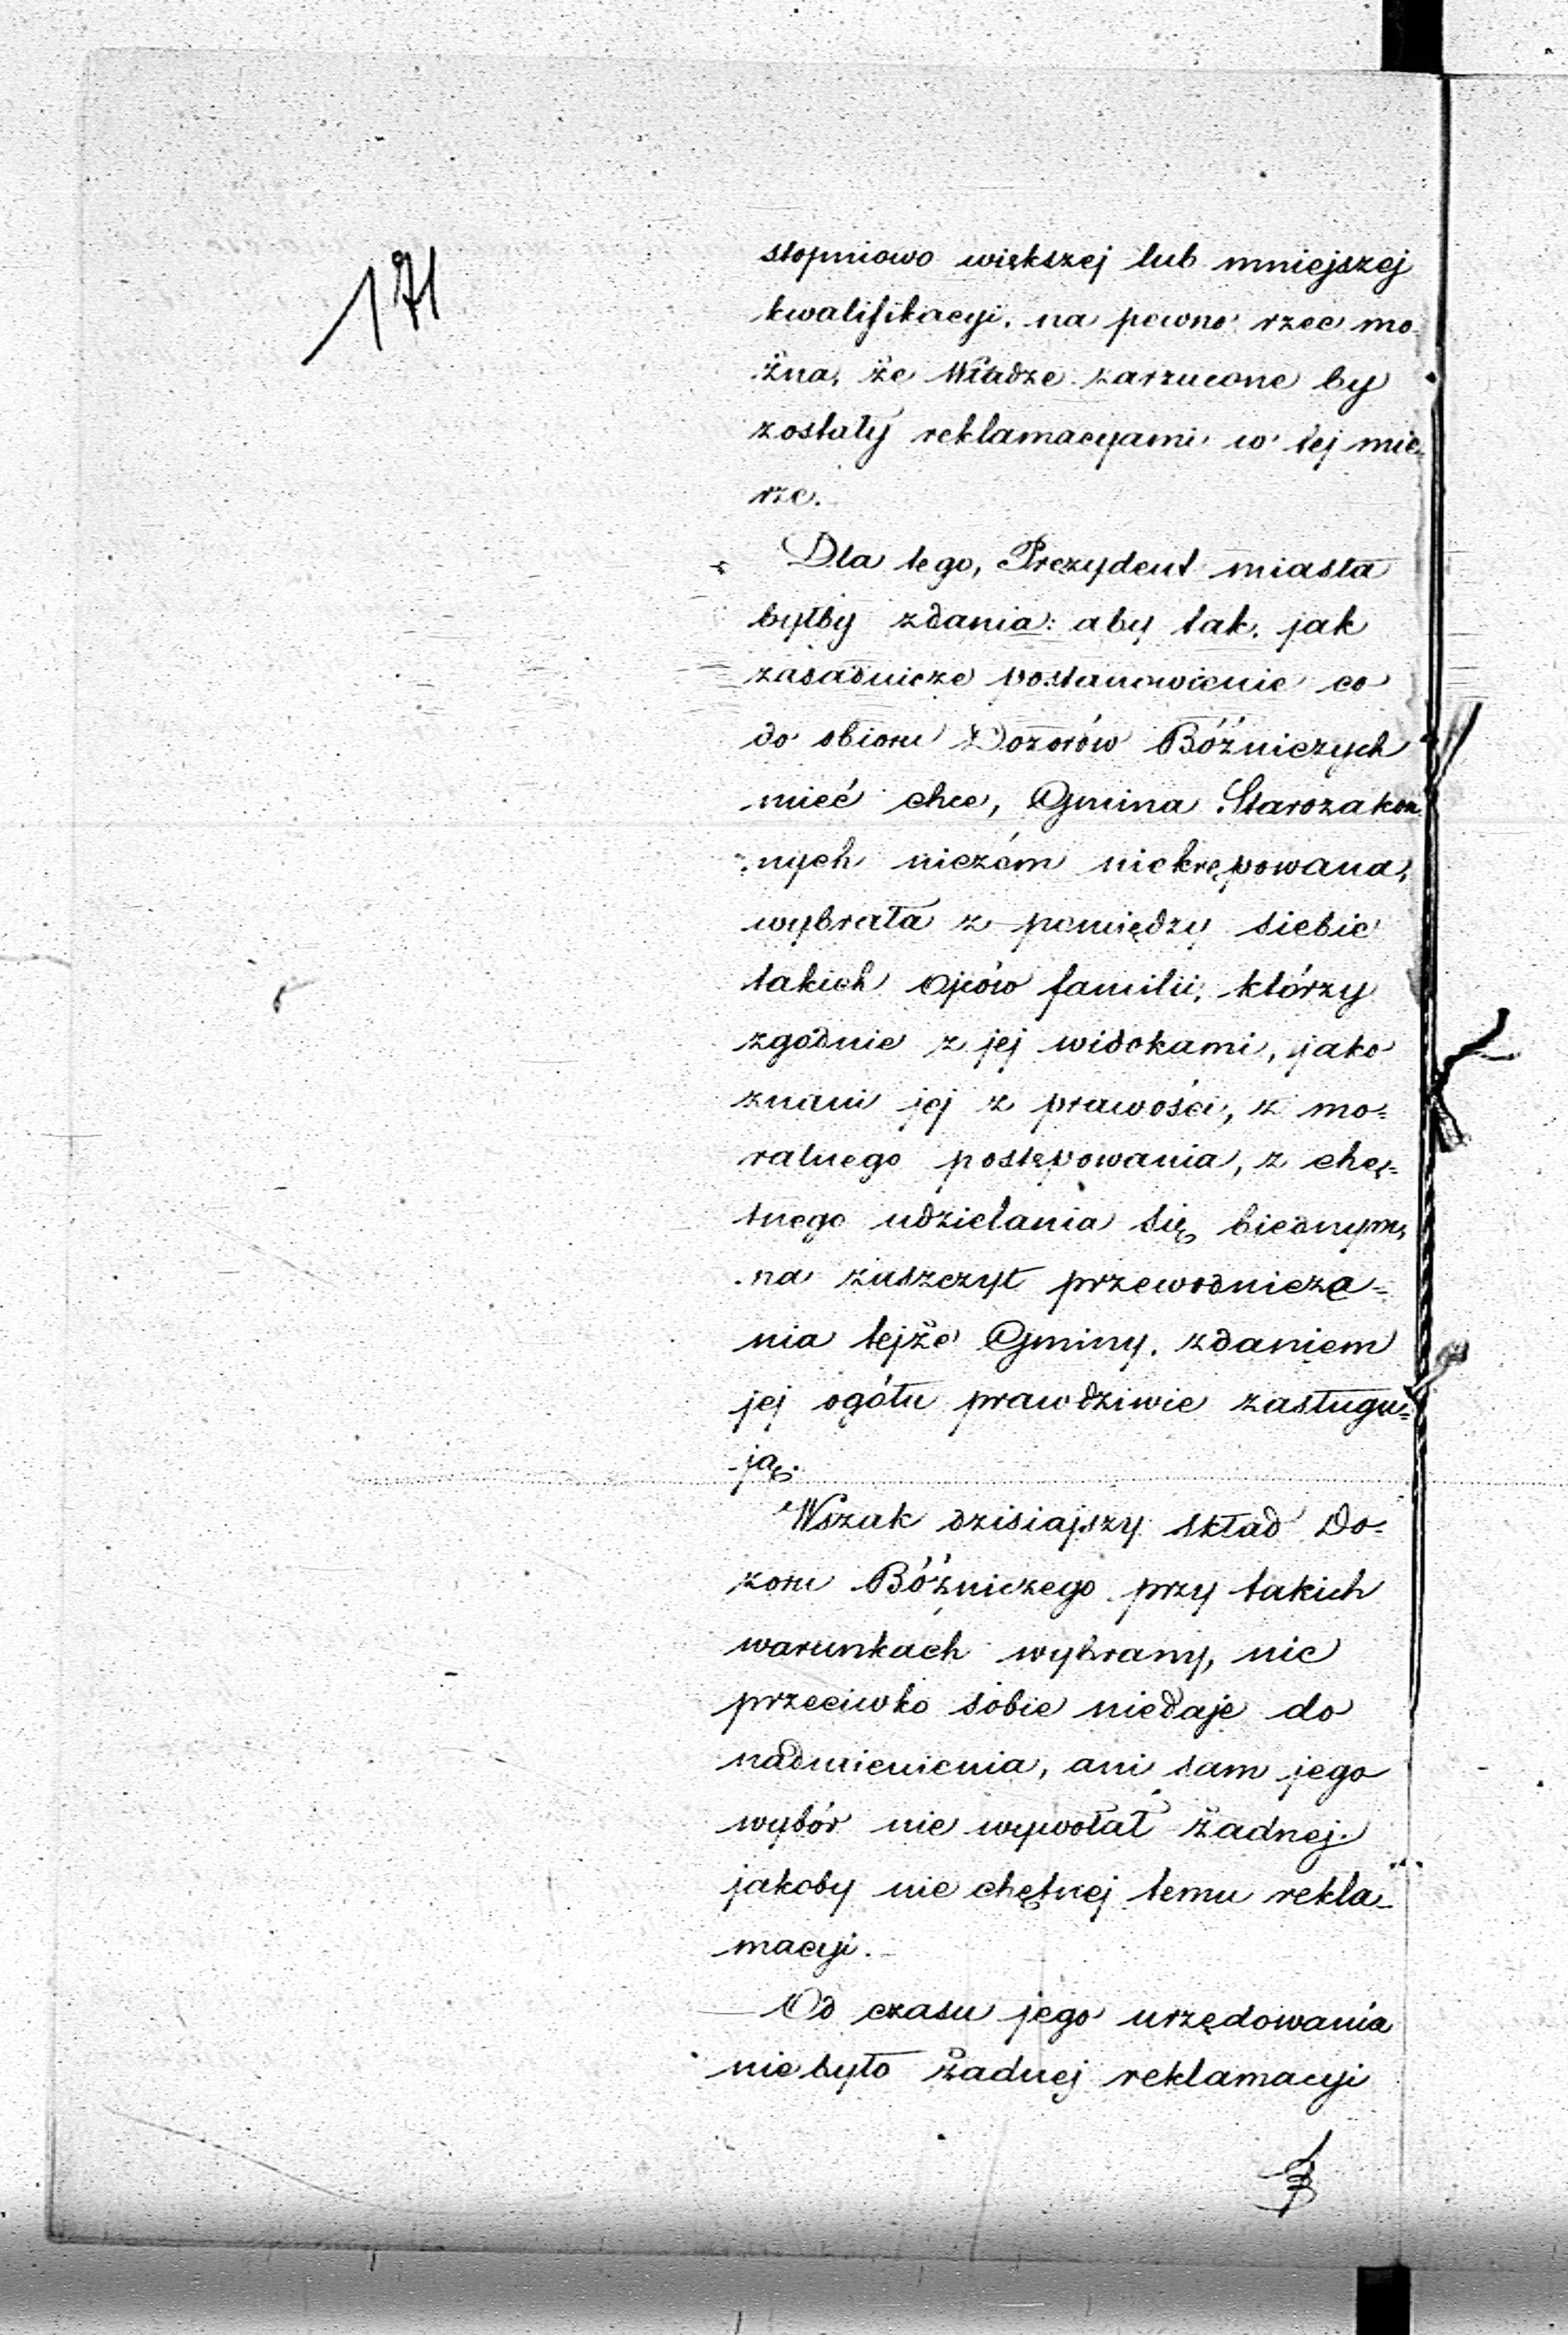 171
stopniowo większej lub mniejszej
kwalifikacyi, na pewno rzec mo-
żna, że Władze zarzucone by
zostały reklamacyami w tej mie-
rze.
Dla tego, Prezydent miasta
byłby zdania: aby tak, jak
zasadnicze postanowienie co
do obioru Dozorów Bóźniczych
mieć chce, Gmina Starozakon-
nych niczém niekrępowana,
wybrała z pomiędzy siebie
takich ojców familii, którzy
zgodnie z jej widokami, jako
znani jej z prawości, z mo=
ralnego postępowania, z chę=
tnego udzielania się biednym,
na zaszczyt przewodnicze=
nia tejże Gminy, zdaniem
jej ogółu prawdziwie zasługu=
ją.
Wszak dzisiajszy skład Do=
zoru Bóźniczego przy takich
warunkach wybrany, nic
przeciwko sobie niedaje do
nadmienienia, ani sam jego
wybór nie wywołał żadnej
jakoby nie chętnej temu rekla-
macyi.
Od czasu jego urzędowania
niebyło żadnej reklamacyi